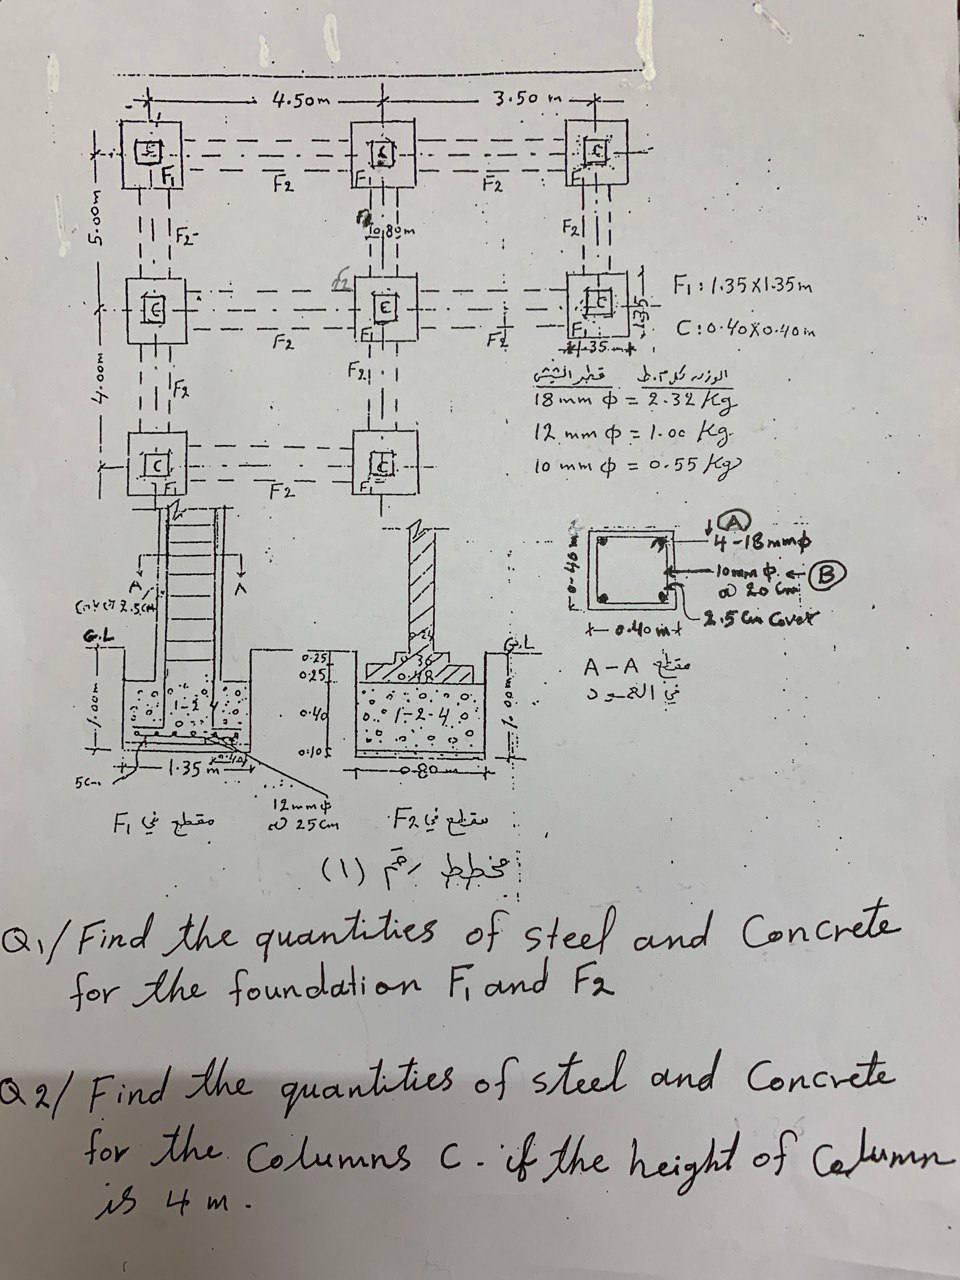 4.50m 3.50 m
C C C
F1 F1 F1
F2 F2
5.00m F2 F2 0.80m F2
F2
C C C
F1 F1
F2 F2
1.35
1.35 m
F1 : 1.35 X 1.35 m
C : 0.40 X 0.40 m
4.00m F2 F2
قطر الشيش الوزن كل م.ط
18 mm ϕ = 2.32 Kg
12 mm ϕ = 1.00 Kg
10 mm ϕ = 0.55 Kg
C C
F1 F1
F2
A A
Cover 2.5cm
G.L
1.00m
1-2-4
5cm
1.35 m
12mmϕ
@ 25cm
مقطع في F1
0.25
0.25
0.40
0.10
24
0.36
0.48
1-2-4
0.80m
G.L
1.00m
مقطع في F2
0.40 m
0.40 m
A
4-18mmϕ
10mm ϕ. B
@ 20 cm
2.5 Cm Cover
مقطع A-A
في العمود
مخطط رقم (1)
Q1/ Find the quantities of steel and Concrete
for the foundation F1 and F2
Q2/ Find the quantities of steel and Concrete
for the Columns C. if the height of Column
is 4 m.